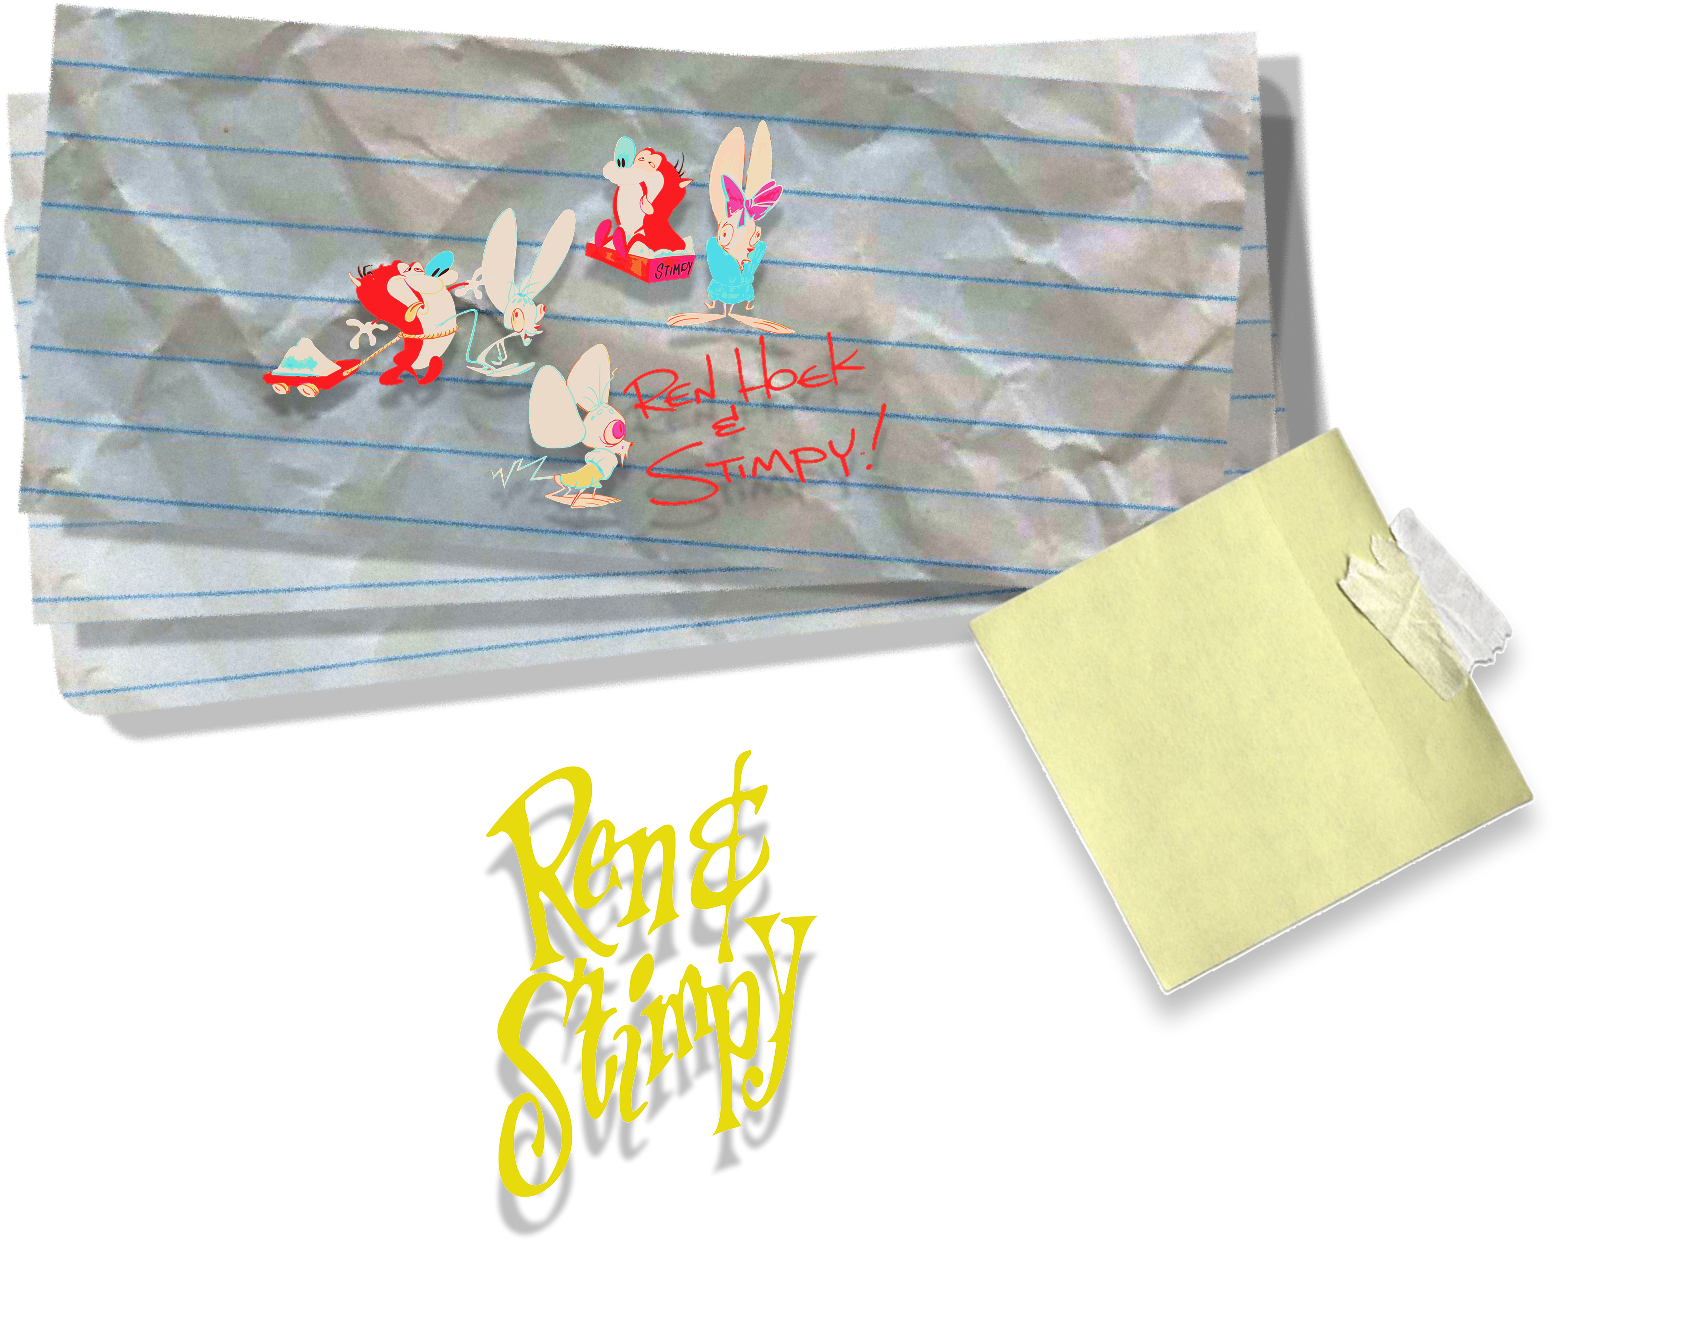 STIMPY
REN HOEK
&
STIMPY!
Ren &
Stimpy